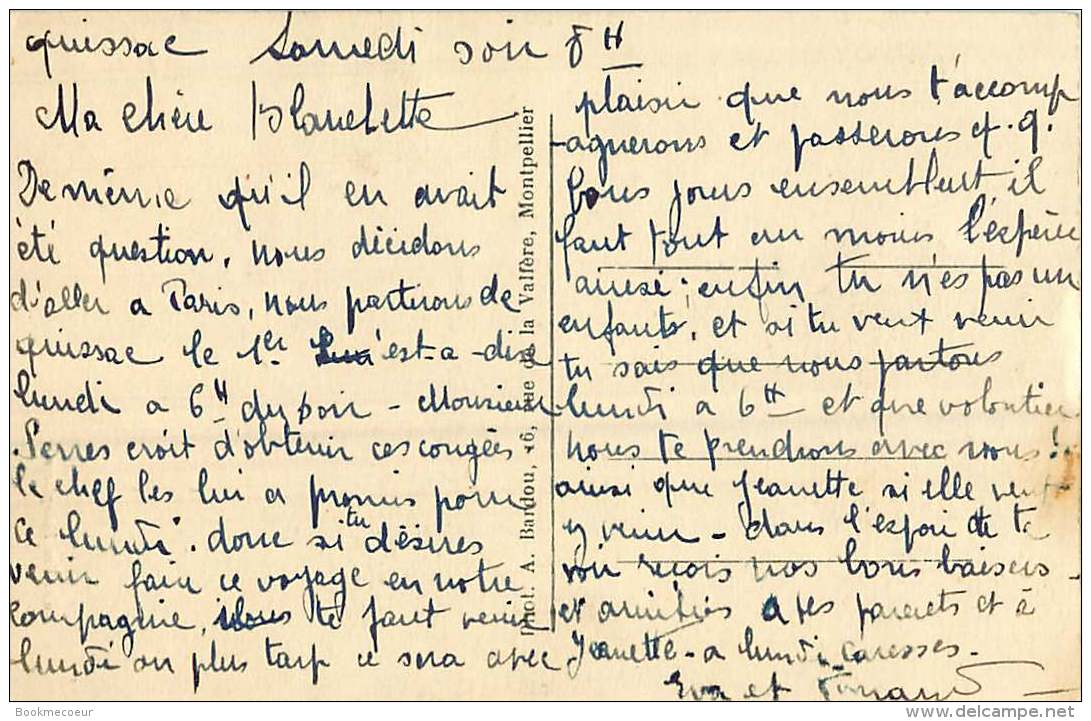 quissac Samedi soir 8H
Ma chère Blanchette
De même qu'il en avait
été question, nous décidons
d'aller a Paris, nous partirons de
quissac le 1er c'est-a-dire
lundi a 6H du soir - Monsieur
Serres croit d'obtenir ces congées
le chef les lui a promis pour
ce lundi. donc si tu désires
venir faire ce voyage en notre
compagnie, il te faut venir
lundi au plus tard ce sera avec
plaisir que nous t'accomp
agnerons et passerons q.q.
bons jours ensemble il
faut tout au moins l'espérer
ainsi; enfin tu n'es pas un
enfant, et si tu veut venir
tu sais que nous partons
lundi a 6H et que volontier
nous te prendrons avec nous!
ainsi que Jeanette si elle veut
y venir - dans l'espoir de te
voir reçois nos bons baisers
et amitiés a tes parents et à
Jeanette - a lundi caresses.
Eva et Fernand
Phot. A. Bardou, 16, rue de la Valfère, Montpellier
Bookmecoeur
delcampe.net